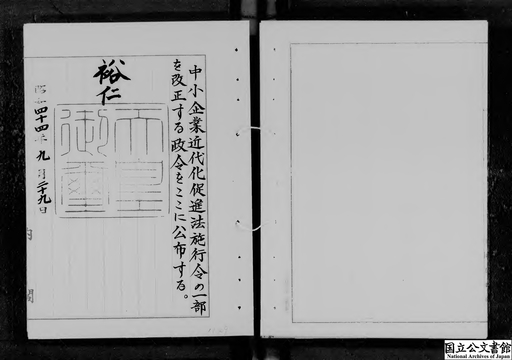 中小企業近代化促進法施行令の一部
を改正する政令をここに公布する。
裕仁
天皇
御璽
昭和四十四年九月二十九日
内閣
国立公文書館
National Archives of Japan